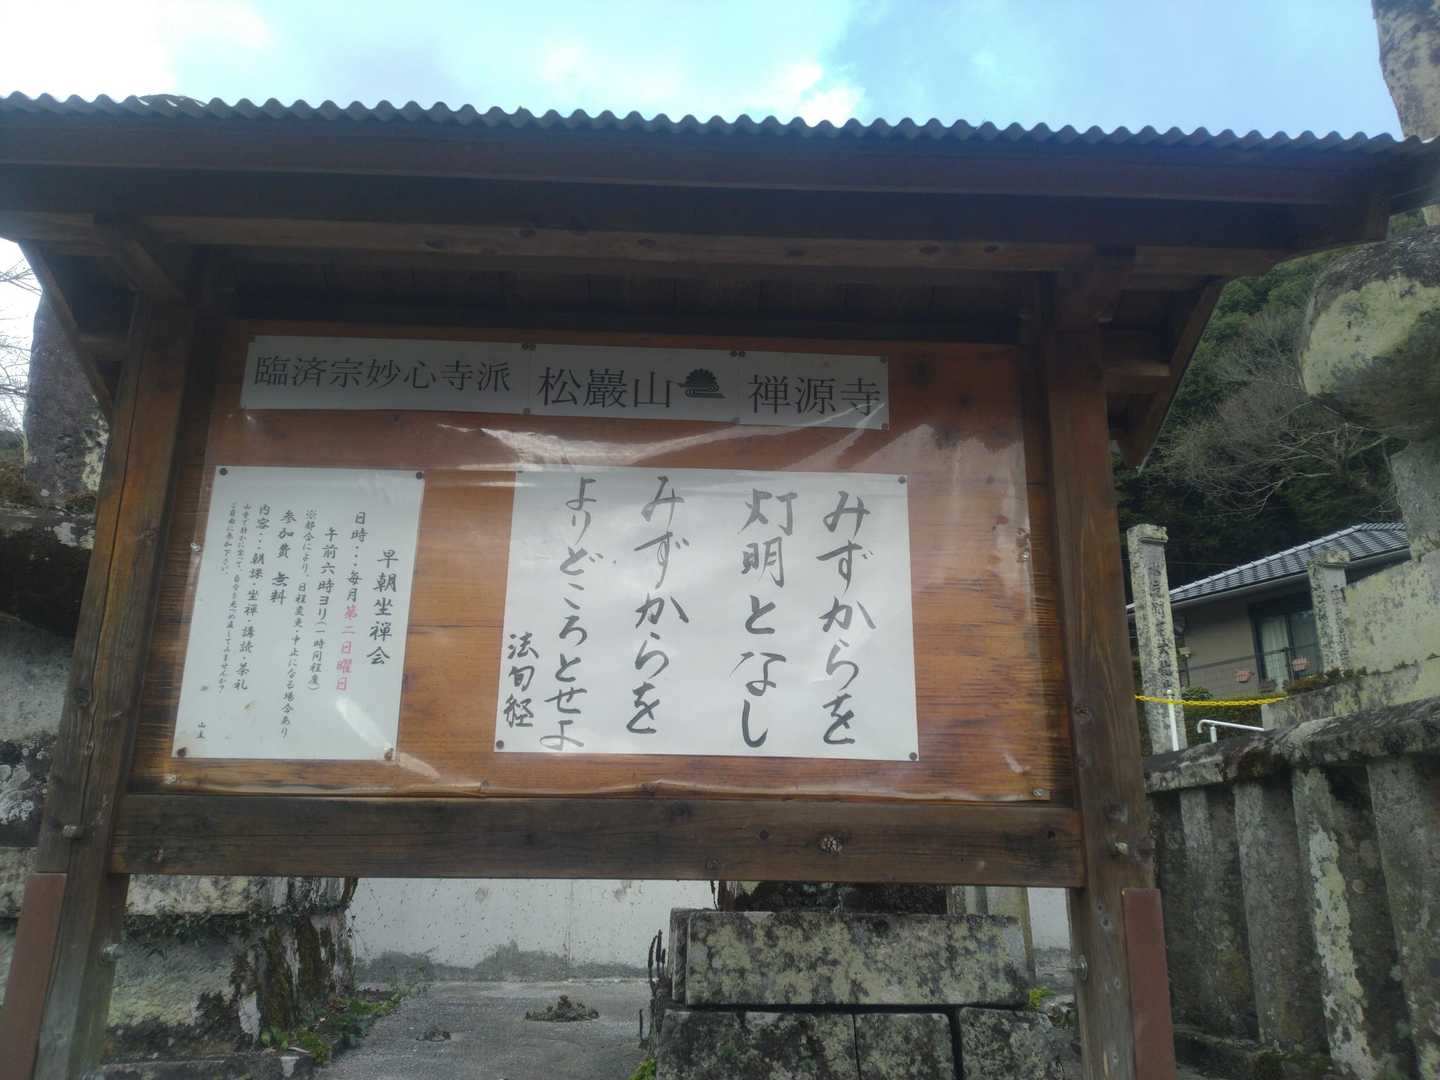 臨済宗妙心寺派 松巖山 禅源寺
みずからを
灯明となし
みずからを
よりどころとせよ
法句経
早朝坐禅会
日時・・・毎月第二日曜日
午前六時ヨリ(一時間程度)
※都合により、日程変更・中止になる場合あり
参加費 無料
内容・・・朝課・坐禅・講読・茶礼